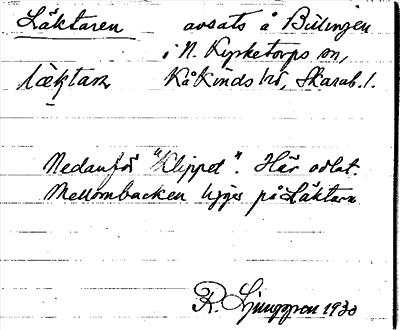 Läktaren avsats å Billingen
i N. Kyrketorps sn,
läktaɳ Kåkinds hd, Skarab. l.
Nedanför "Klippet". Här odlat.
Mellombacken ligger på Läktarn
R. Ljunggren 1930